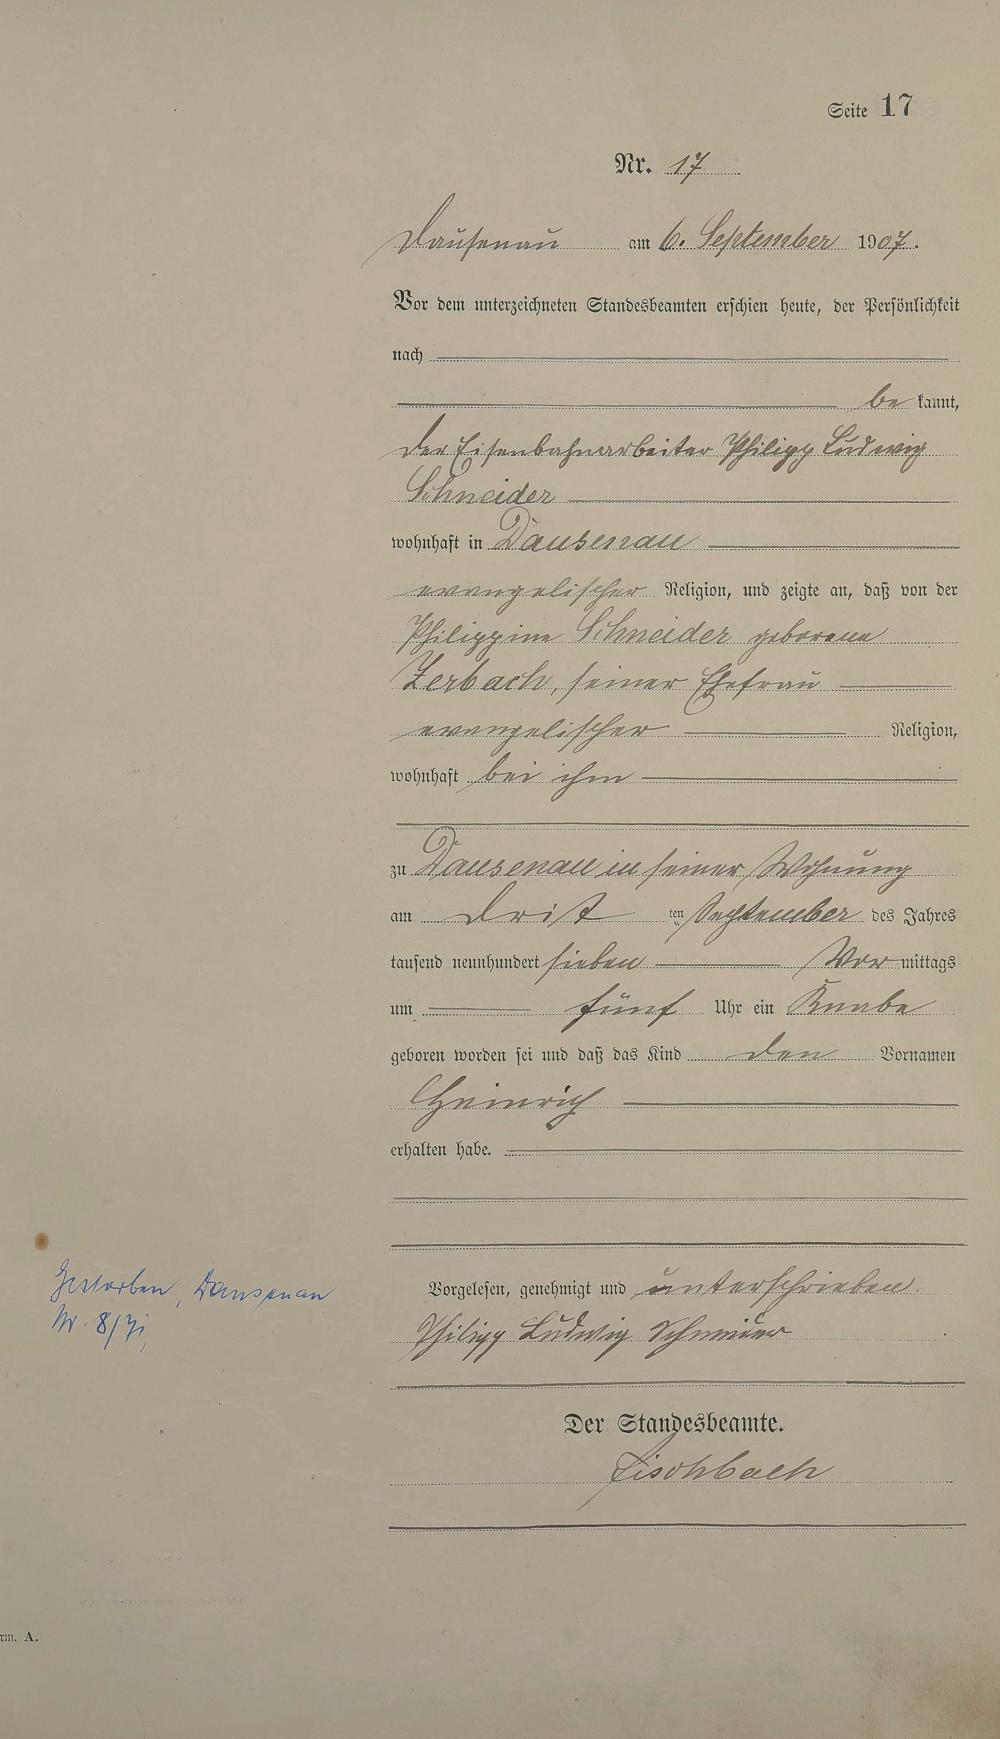 Seite 17
Nr. 17
Dausenau am 6. September 1907.
Vor dem unterzeichneten Standesbeamten erschien heute, der Persönlichkeit
nach
be kannt,
der Eisenbahnarbeiter Philipp Ludwig
Schneider
wohnhaft in Dausenau
evangelischer Religion, und zeigte an, daß von der
Philippine Schneider geborene
Zerbach, seiner Ehefrau
evangelischer Religion,
wohnhaft bei ihm
zu Dausenau in seiner Wohnung
am drit ten September des Jahres
tausend neunhundert sieben Vor mittags
um fünf Uhr ein Knabe
geboren worden sei und daß das Kind den Vornamen
Heinrich
erhalten habe.
Vorgelesen, genehmigt und unterschrieben.
Philipp Ludwig Schneider
Gestorben, Dausenau
Nr. 8/71
Der Standesbeamte.
Fischbach
rm. A.